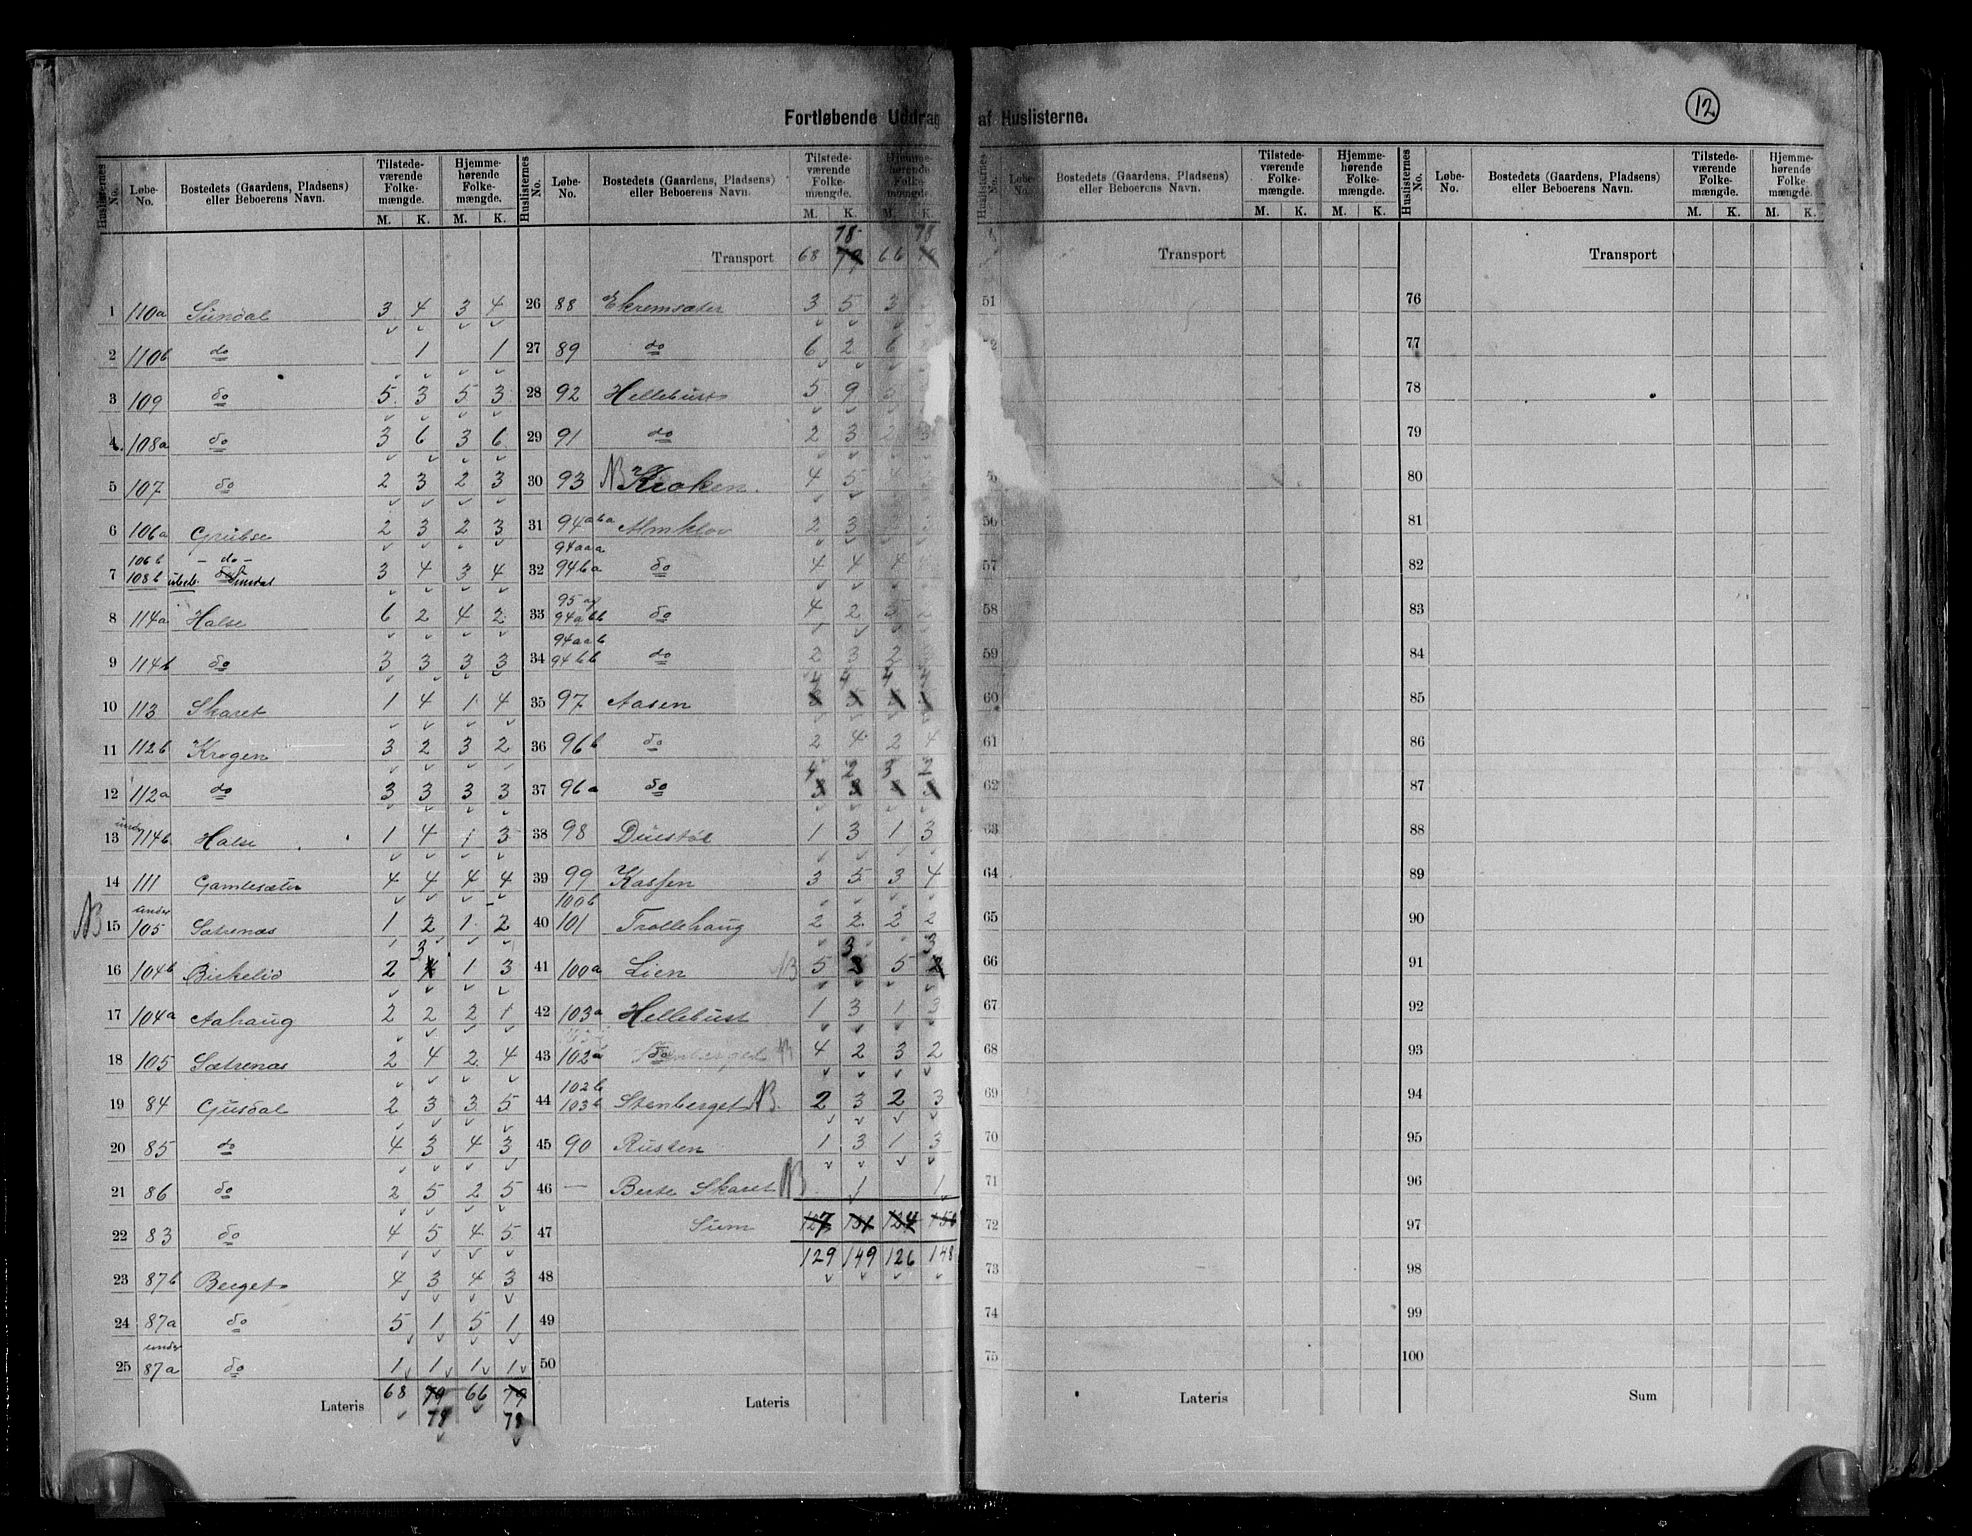 12
Fortløbende Uddrag af Huslisterne.
Huslisternes No. Løbe-No. Bostedets (Gaardens, Pladsens) eller Beboerens Navn. Tilstedeværende Folkemængde. M. K. Hjemmehørende Folkemængde. M. K.
1 110a Sundal 3 4 3 4
2 110b do 1 1
3 109 do 5 3 5 3
4 108a do 3 6 3 6
5 107 do 2 3 2 3
6 106a Grubse 2 3 2 3
106b - do -
7 108b 3 4 3 4
8 114a Halse 6 2 4 2
9 114b do 3 3 3 3
10 113 Skaret 1 4 1 4
11 112b Krogen 3 2 3 2
12 112a do 3 3 3 3
under
13 114b Halse 1 4 1 3
14 111 Gamlesæter 4 4 4 4
under
NB 15 105 Sætrenæs 1 2 1 2
3
16 104b Birkelid 2 4 1 3
17 104a Aahaug 2 2 2 1
18 105 Sætrenæs 2 4 2 4
19 84 Gusdal 2 3 3 5
20 85 do 4 3 4 3
21 86 do 2 5 2 5
22 83 do 4 5 4 5
23 87b Berget 4 3 4 3
24 87a do 5 1 5 1
under
25 87a do 1 1 1 1
Lateris 68 79 66 79
78 78
Huslisternes No. Løbe-No. Bostedets (Gaardens, Pladsens) eller Beboerens Navn. Tilstedeværende Folkemængde. M. K. Hjemmehørende Folkemængde. M. K.
78 78
Transport 68 79 66
26 88 Ekremsæter 3 5 3
27 89 do 6 2 6
28 92 Hellebust 5 9
29 91 do 2 3 2 3
30 93 NB Kroken 4 5
31 94aba Almklov 2 3
94aaa
32 94ba do 4 4 4
95a
33 94abb do 4 2 3 2
94aab
34 94bb do 2 3 2
4 4 4
35 97 Aasen
36 96b do 2 4 2 4
4 2 3 2
37 96a do 3 3
38 98 Duestøl 1 3 1 3
39 99 Kassen 3 5 3 4
100b
40 101 Trollehaug 2 2 2 2
3 3
41 100a Lien NB 5 2 5 2
42 103a Hellebust 1 3 1 3
43 102a do 4 2 3 2
102b
44 103b Stenberget NB 2 3 2 3
45 90 Rusten 1 3 1 3
46 — Berte Skaret NB 1 1
47 Sum 127 151 124 150
129 149 126 148
48
49
50
Lateris
Huslisternes No. Løbe-No. Bostedets (Gaardens, Pladsens) eller Beboerens Navn. Tilstedeværende Folkemængde. M. K. Hjemmehørende Folkemængde. M. K.
Transport
51
56
57
58
59
60
61
62
63
64
65
66
67
68
69
70
71
72
73
74
75
Lateris
Huslisternes No. Løbe-No. Bostedets (Gaardens, Pladsens) eller Beboerens Navn. Tilstedeværende Folkemængde. M. K. Hjemmehørende Folkemængde. M. K.
Transport
76
77
78
79
80
81
82
83
84
85
86
87
88
89
90
91
92
93
94
95
96
97
98
99
100
Sum